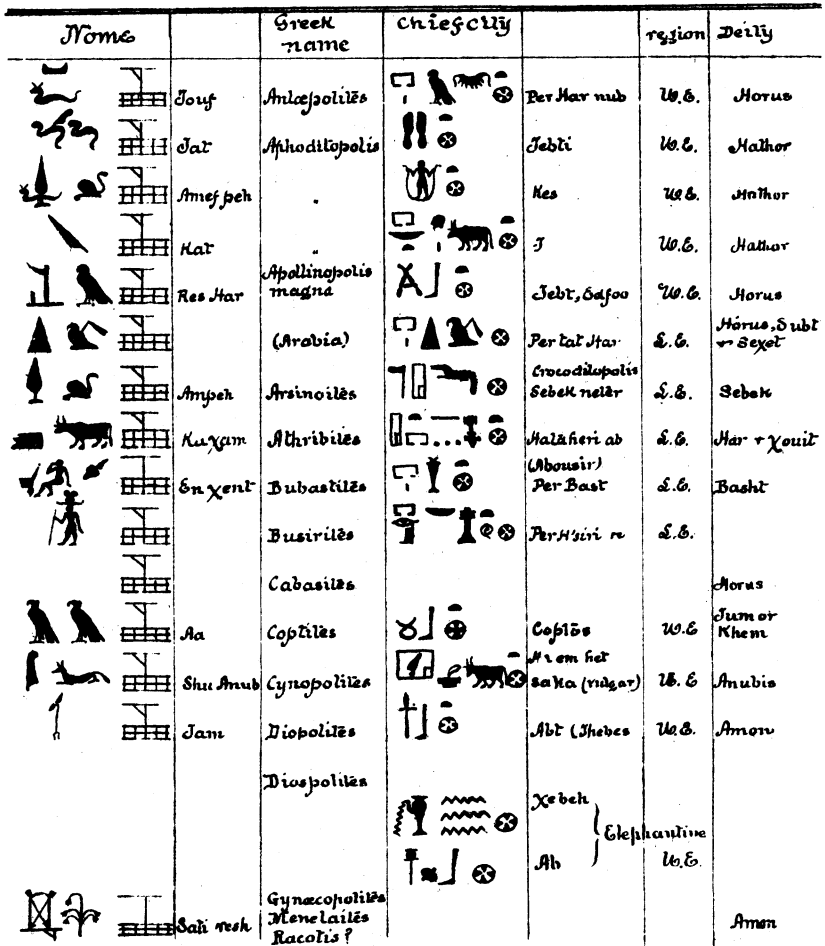 Nome Greek name Chief City region Deity
Touf Antæpolites Per Har nub U.E. Horus
Tat Aphoditopolis Tebti U.E. Hathor
Amef peh " Kes U.E. Hathor
Kat " U.E. Hathor
Res Har Apollinopolis magna Tebt, Edfoo U.E. Horus
(Arabia) Per tat Har L.E. Horus, Subt & Sexet
Ampeh Arsinoites Crocodilopolis Sebek neter L.E. Sebek
Kuχam Athribites Hataheri ab L.E. Har & χouit
En χent Bubastites (Abousir) Per Bast L.E. Basht
Busirites L.E.
Cabasites Horus
Aa Coptites Coptos U.E Tum or Khem
Shu Anub Cynopolites Ha em het saka (vulgar) U.E Anubis
Tam Diopolites Abt (Thebes U.E. Amon
Diospolites
χebeh
Elephantine
Ab U.E.
Sati resh Gynæcopolites Menelaites Racotis? Amon